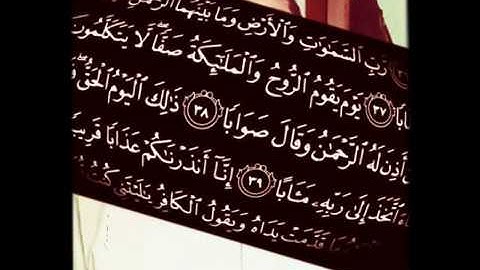 رَّبِّ ٱلسَّمَٰوَٰتِ وَٱلْأَرْضِ وَمَا بَيْنَهُمَا ٱلرَّحْمَٰنِ
ابًا ٣٧ يَوْمَ يَقُومُ ٱلرُّوحُ وَٱلْمَلَٰٓئِكَةُ صَفًّا لَّا يَتَكَلَّمُونَ
أَذِنَ لَهُ ٱلرَّحْمَٰنُ وَقَالَ صَوَابًا ٣٨ ذَٰلِكَ ٱلْيَوْمُ ٱلْحَقُّ
ٱتَّخَذَ إِلَىٰ رَبِّهِۦ مَـَٔابًا ٣٩ إِنَّآ أَنذَرْنَٰكُمْ عَذَابًا قَرِيبً
مَا قَدَّمَتْ يَدَاهُ وَيَقُولُ ٱلْكَافِرُ يَٰلَيْتَنِى كُنتُ